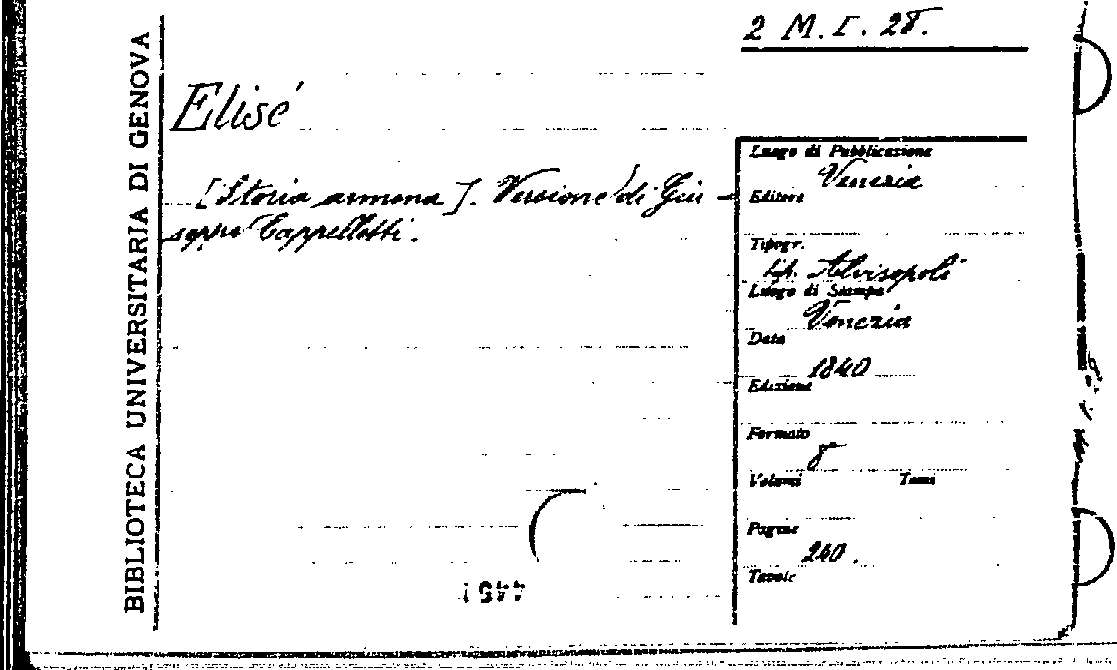 2 M. I. 28.
BIBLIOTECA UNIVERSITARIA DI GENOVA
Elisé
[Storia armena]. Versione di Giu-
seppe Cappelletti.
Luogo di Pubblicazione
Venezia
Editore
Tipogr.
tip. Alvisopoli
Luogo di Stampa
Venezia
Data
1840
Edizione
Formato
8°
Volumi Tomi
Pagine
240.
Tavole